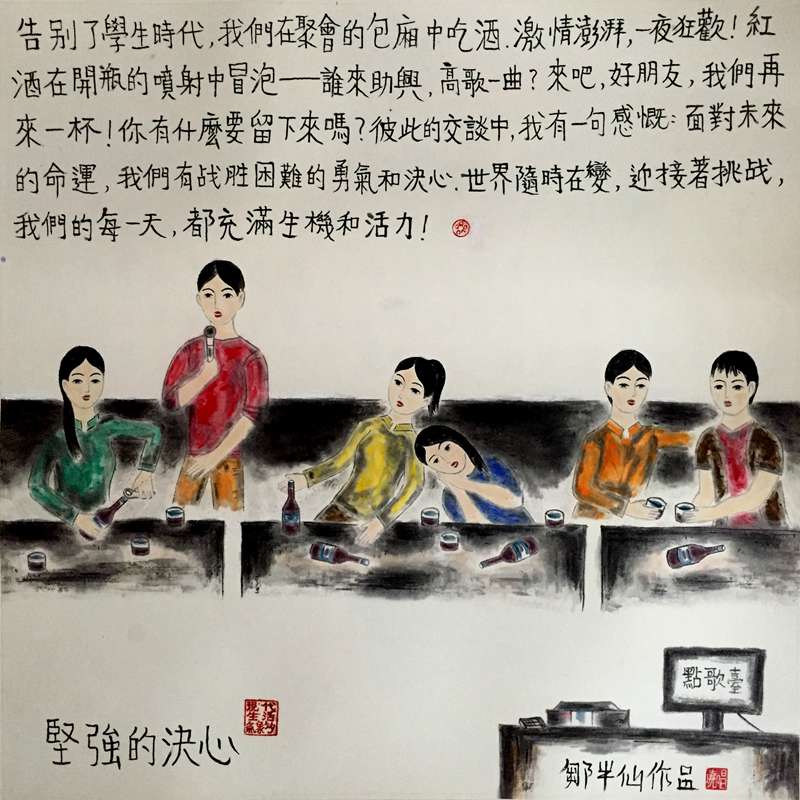 告别了學生時代,我們在聚會的包廂中吃酒.激情澎湃,一夜狂歡!紅
酒在開瓶的噴射中冒泡——誰來助興,高歌一曲?來吧,好朋友,我們再
來一杯!你有什麼要留下來嗎?彼此的交談中,我有一句感慨:面對未來
的命運,我們有战胜困難的勇氣和決心.世界隨時在變,迎接著挑战,
我們的每一天,都充滿生機和活力!
點歌臺
堅強的決心
鄒半仙作品